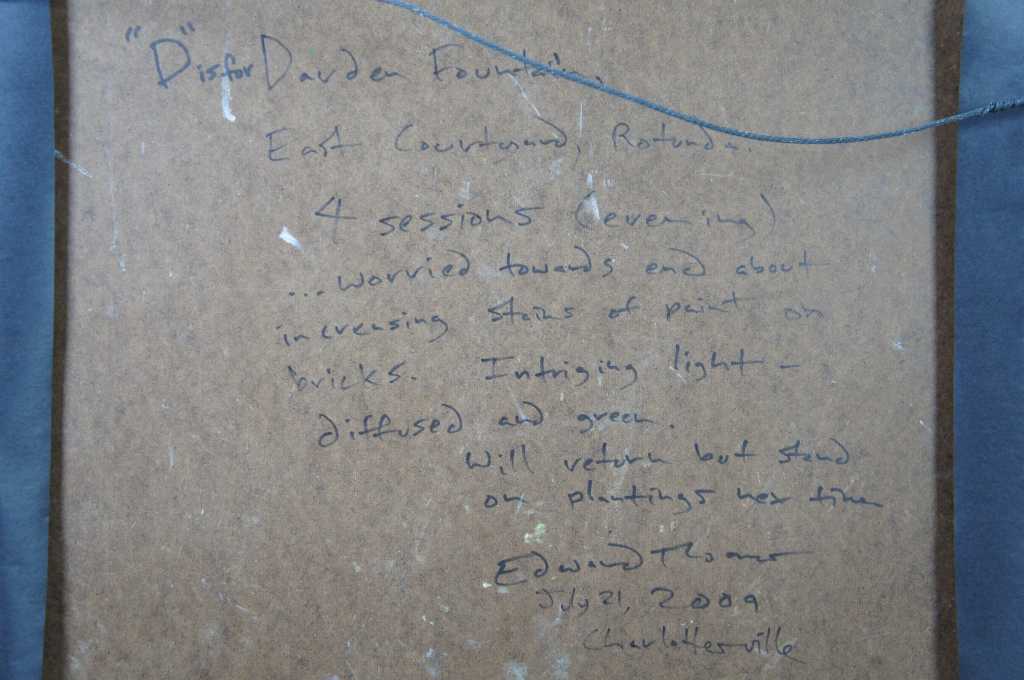 "D" is for Darden Fountain.
East Courtyard, Rotunda.
4 sessions (evening)
...worried towards end about
increasing stains of paint on
bricks. Intriging light -
diffused and green.
Will return but stand
on plantings nex time
Edward Thomas
July 21, 2009
Charlottesville